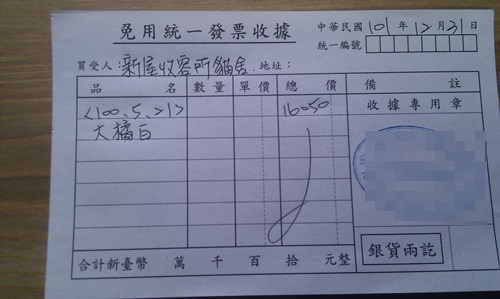 免用統一發票收據
中華民國101年12月31日
統一編號
買受人:新屋收容所貓舍 地址:
品名 數量 單價 總價 備註
<100、5、21> 16050 收據專用章
大橘白
銀貨兩訖
合計新臺幣 萬 千 百 拾 元整